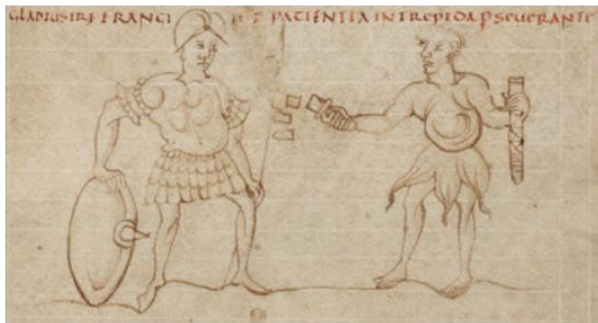 GLADIUS IRE FRANGITUR PATIENTIA INTREPIDA PSEUERANTE